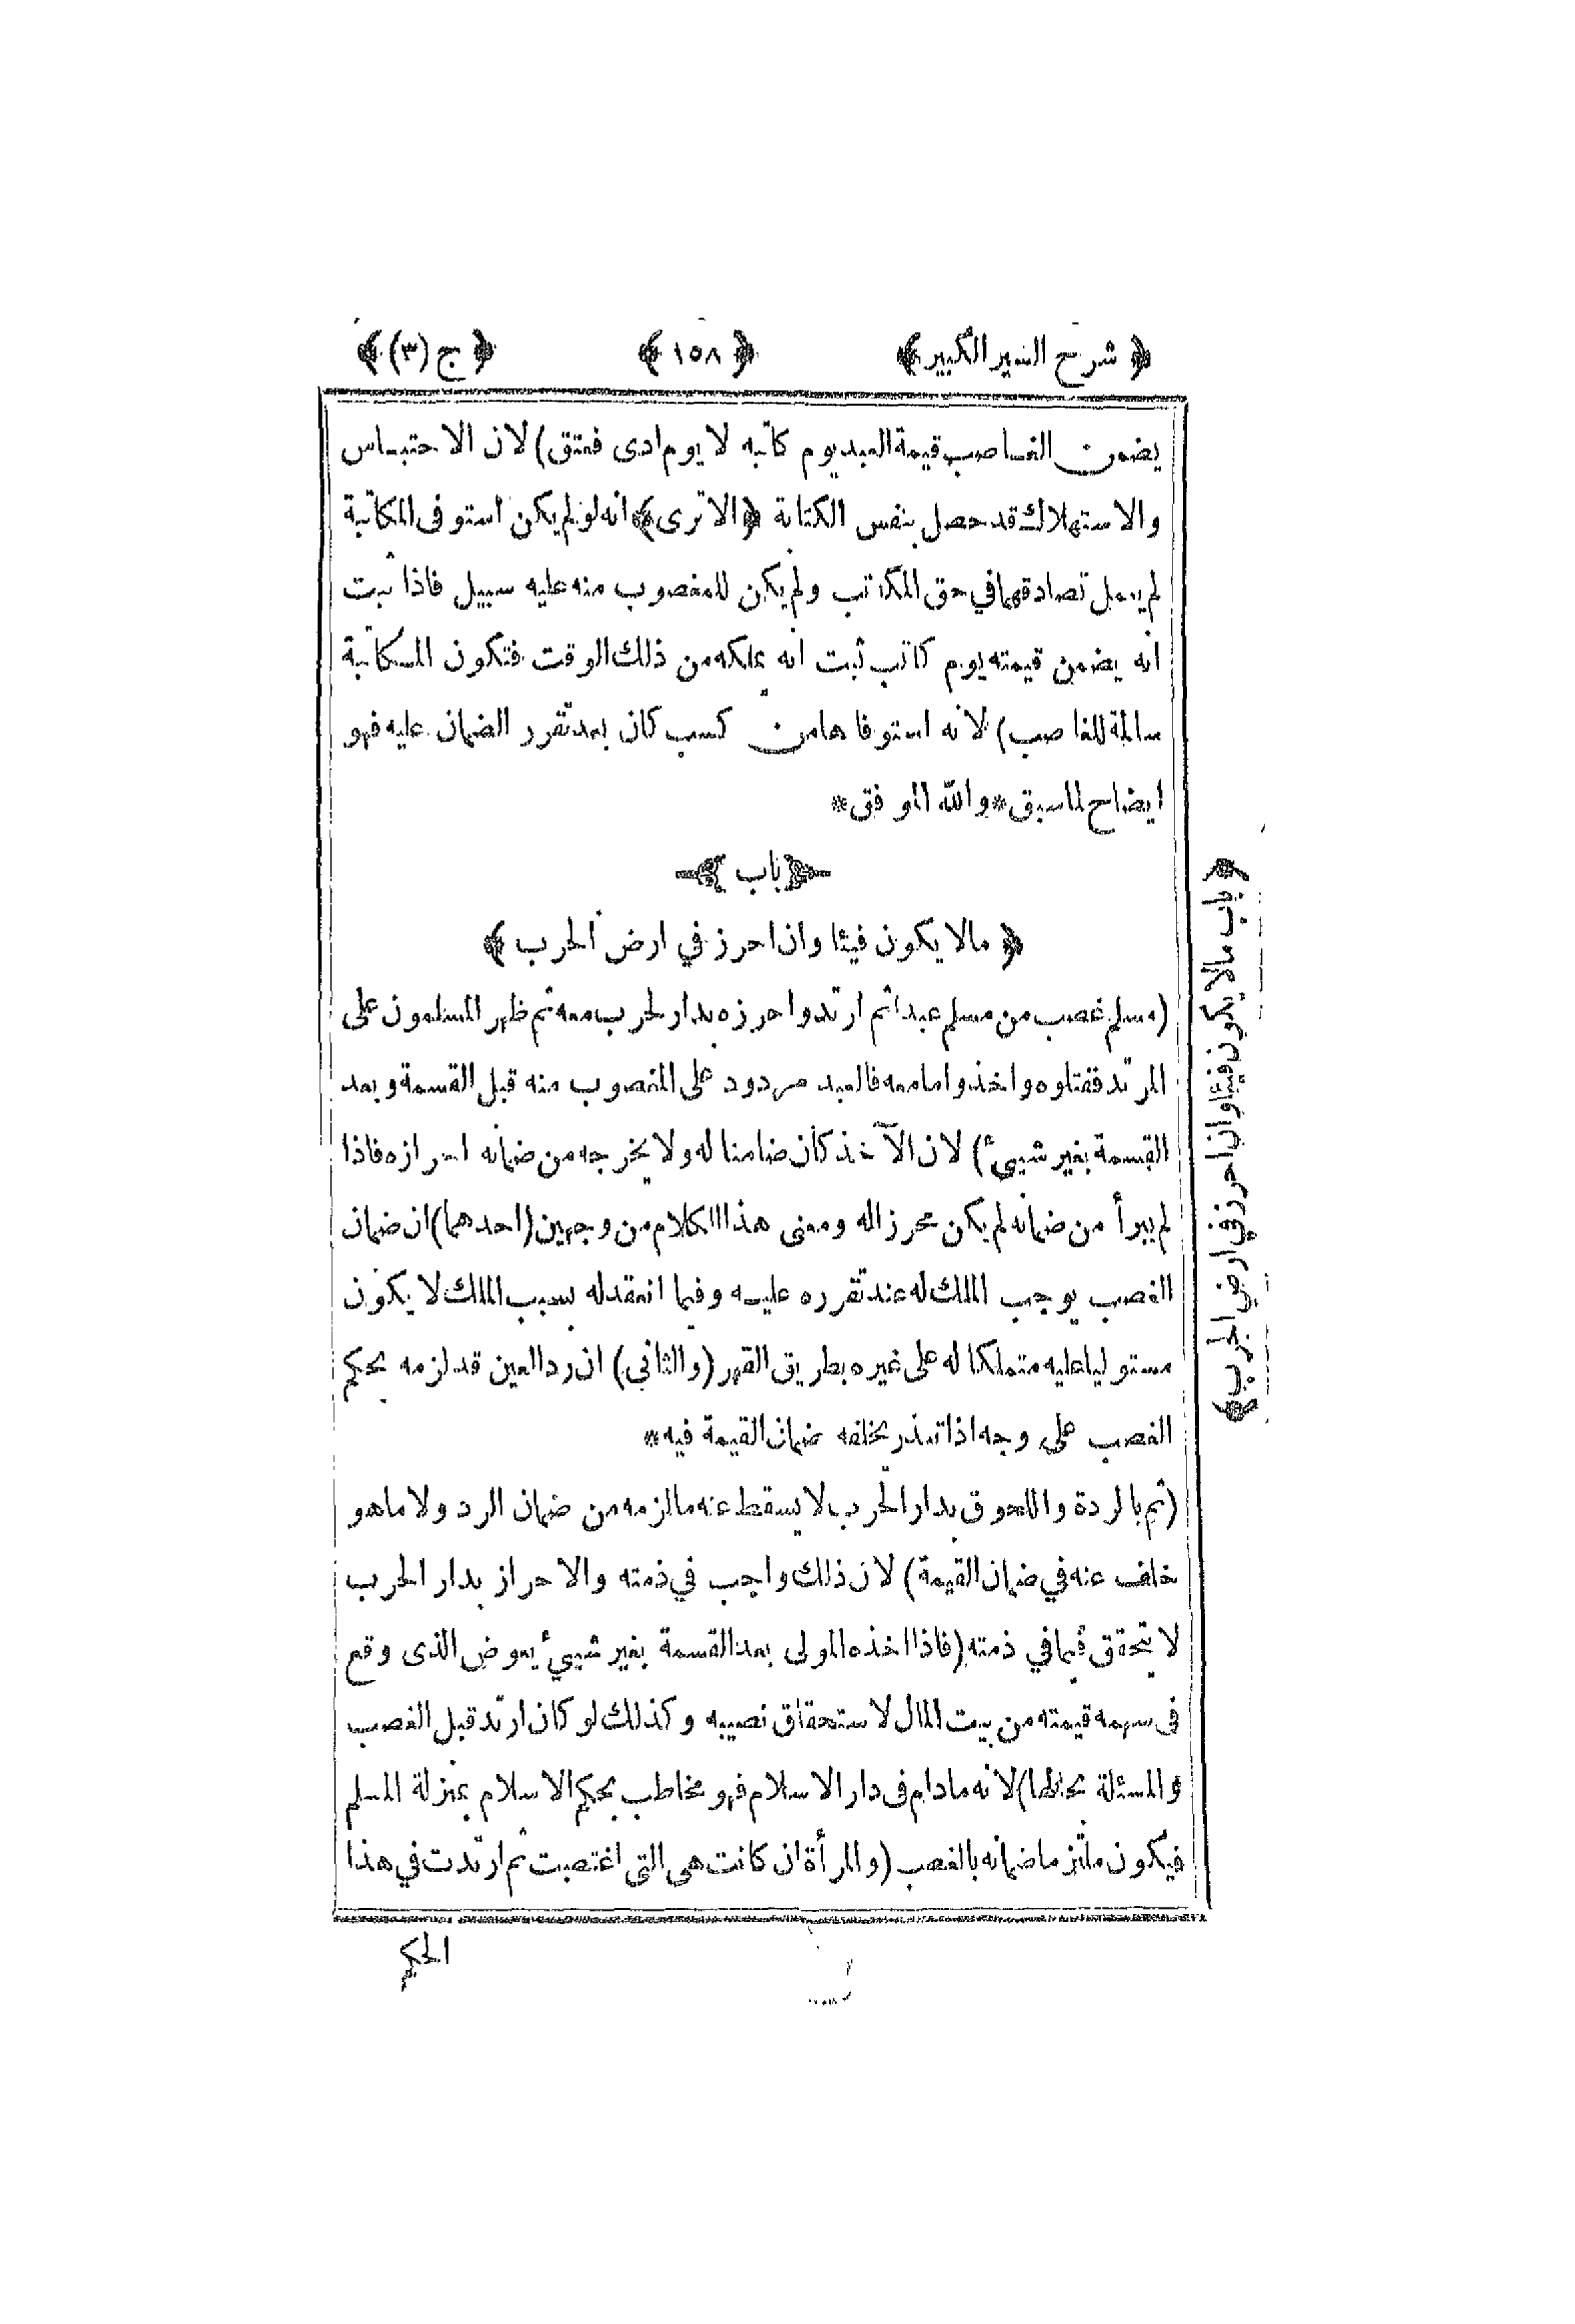 ﴿ شرح السير الكبير ﴾ ﴿ ١٥٨ ﴾ ﴿ ج (٣) ﴾
يضمن الغاصب قيمة العبد يوم كاتبه لا يوم ادى فعتق) لان الاحتباس
والاستهلاك قد حصل بنفس الكتابة ﴿الا ترى﴾ انه لو لم يكن استوفى المكاتبة
لم يعمل تصادقهما في حق المكاتب ولم يكن للمغصوب منه عليه سبيل فاذا ثبت
انه يضمن قيمته يوم كاتب ثبت انه يملكه من ذلك الوقت فتكون المكاتبة
سالمة للغاصب) لانه استوفاها من كسب كان بعد تقرر الضمان عليه فهو
ايضاح لما سبق * والله الموفق *
﴿ باب ﴾
﴿ مالا يكون فيئا وان احرز في ارض الحرب ﴾
(مسلم غصب من مسلم عبدا ثم ارتد واحرزه بدار لحرب معه ثم ظهر المسلمون على
المرتد فقتلوه واخذوا ما معه فالعبد مردود على المغصوب منه قبل القسمة وبعد
القسمة بغير شيئ) لان الآخذ كان ضامنا له ولا يخرجه من ضمانه احرازه فاذا
لم يبرأ من ضمانه لم يكن محرزا له ومعنى هذا الكلام من وجهين (احدهما) ان ضمان
الغصب يوجب الملك له عند تقرره عليه وفيما انعقد له بسبب الملك لا يكون
مستوليا عليه متملكا له على غيره بطريق القهر (والثاني) ان رد العين قد لزمه بحكم
الغصب على وجه اذا تعذر يخلفه ضمان القيمة فيه *
(ثم بالردة واللحوق بدار الحرب لا يسقط عنه ما لزمه من ضمان الرد ولا ما هو
خلف عنه في ضمان القيمة) لان ذلك واجب في ذمته والاحراز بدار الحرب
لا يتحقق فيما في ذمته (فاذا اخذه المولى بعد القسمة بغير شيئ يعوض الذى وقع
فى سهمه قيمته من بيت المال لاستحقاق نصيبه وكذلك لو كان ارتد قبل الغصب
والمسئلة بحالها) لانه مادام فى دار الاسلام فهو مخاطب بحكم الاسلام بمنزلة المسلم
فيكون ملتزما ضمانه بالغصب (والمرأة ان كانت هى التى اغتصبت ثم ارتدت في هذا
الحكم
﴿ باب مالا يكون فيئا وان احرز في ارض الحرب ﴾